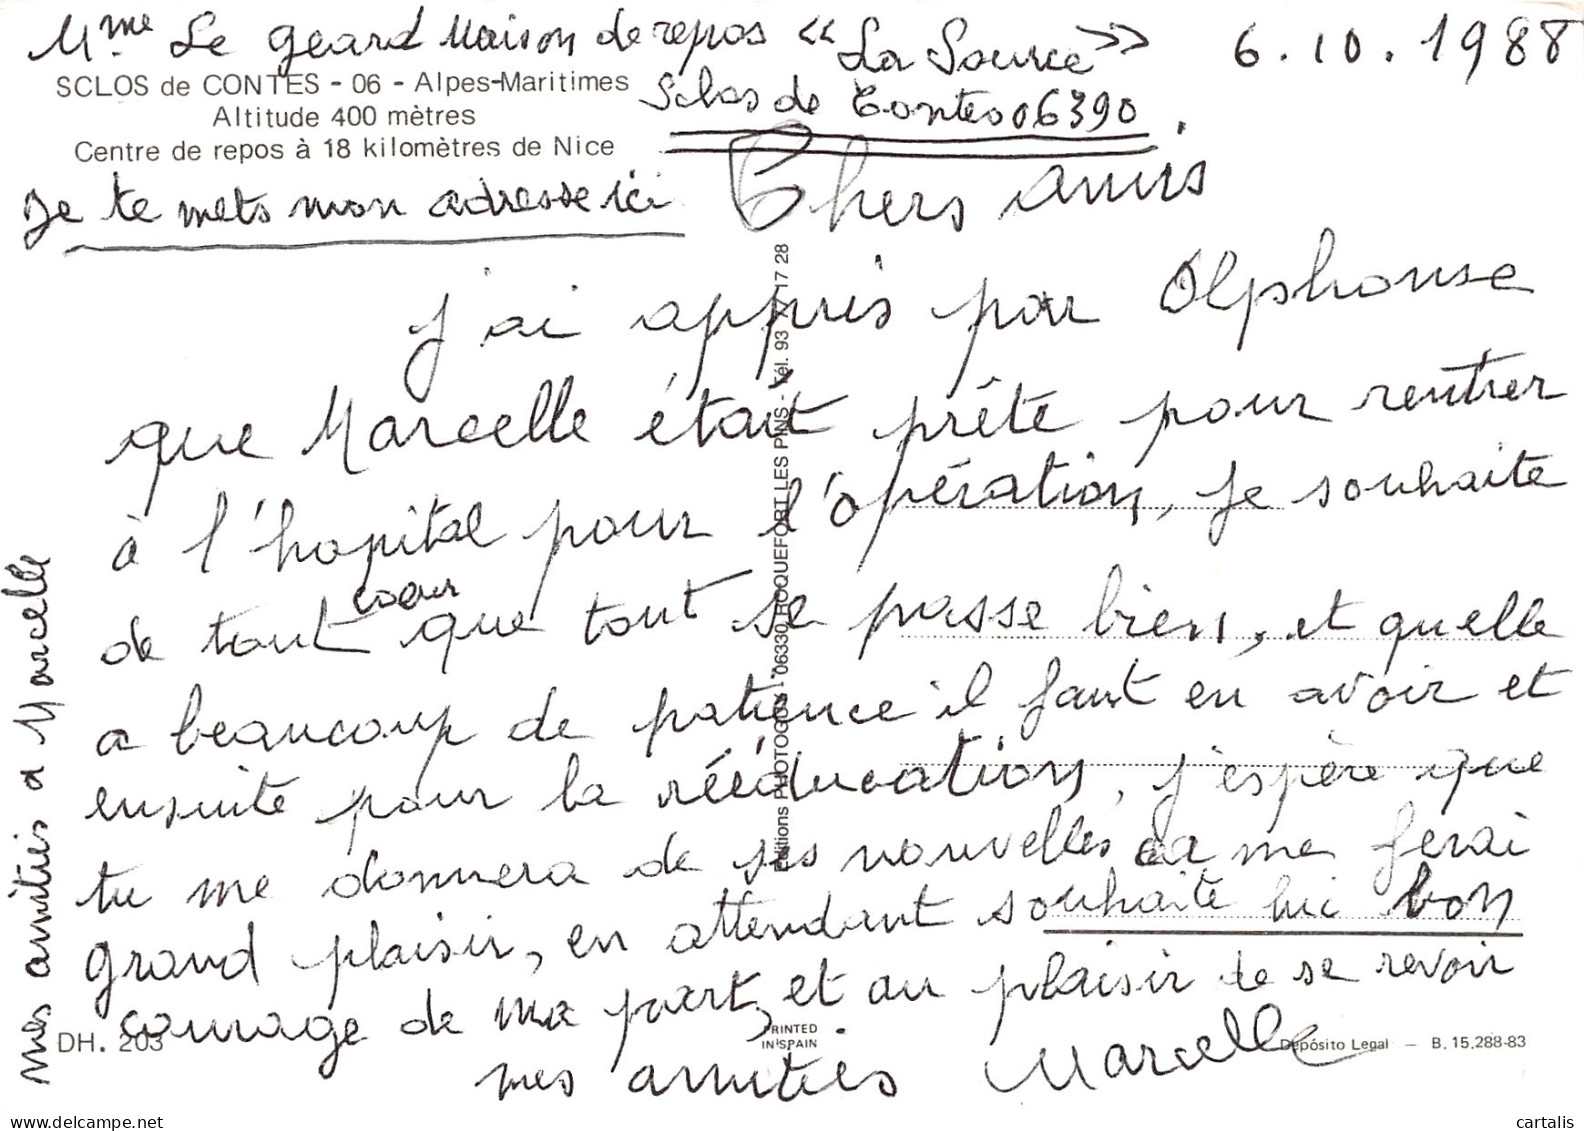 Mme Le geard Maison de repos « La Source » 6.10.1988
SCLOS de CONTES - 06 - Alpes-Maritimes
Sclos de Contes 06390.
Altitude 400 mètres
Centre de repos à 18 kilomètres de Nice
Je te mets mon adresse ici
Chers amis
j'ai appris par Alphonse
que Marcelle était prête pour rentrer
à l'hopital pour l'opération, je souhaite
de tout coeur que tout se passe bien, et quelle
a beaucoup de patience il faut en avoir et
ensuite pour la rééducation, j'espère que
tu me donnera de ses nouvelles ca me ferai
grand plaisir, en attendant souhaite lui bon
courage de ma part, et au plaisir de se revoir
mes amitiés Marcelle
mes amitiés a Marcelle
Editions PHOTOGUY - 06330 ROQUEFORT LES PINS - Tél. 93 17 28
DH. 203
PRINTED
IN SPAIN
Depósito Legal - B. 15.288-83
cartalis
delcampe.net